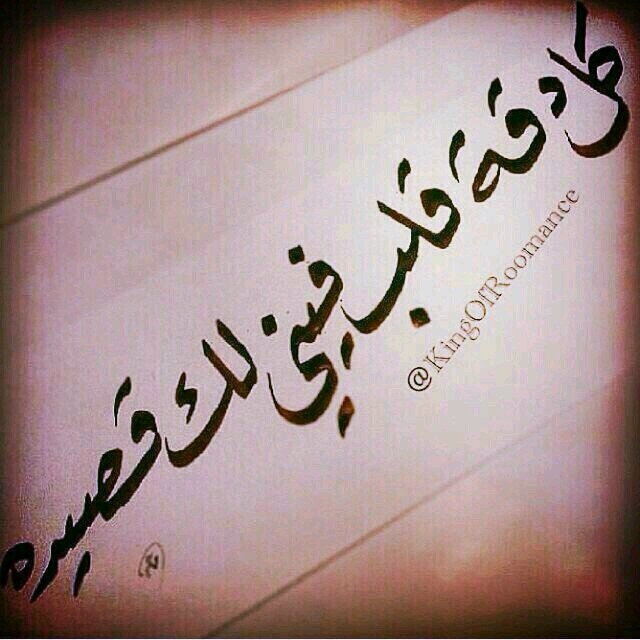 كل دقة قلب فيني لك قصيده
@KingOfRoomance